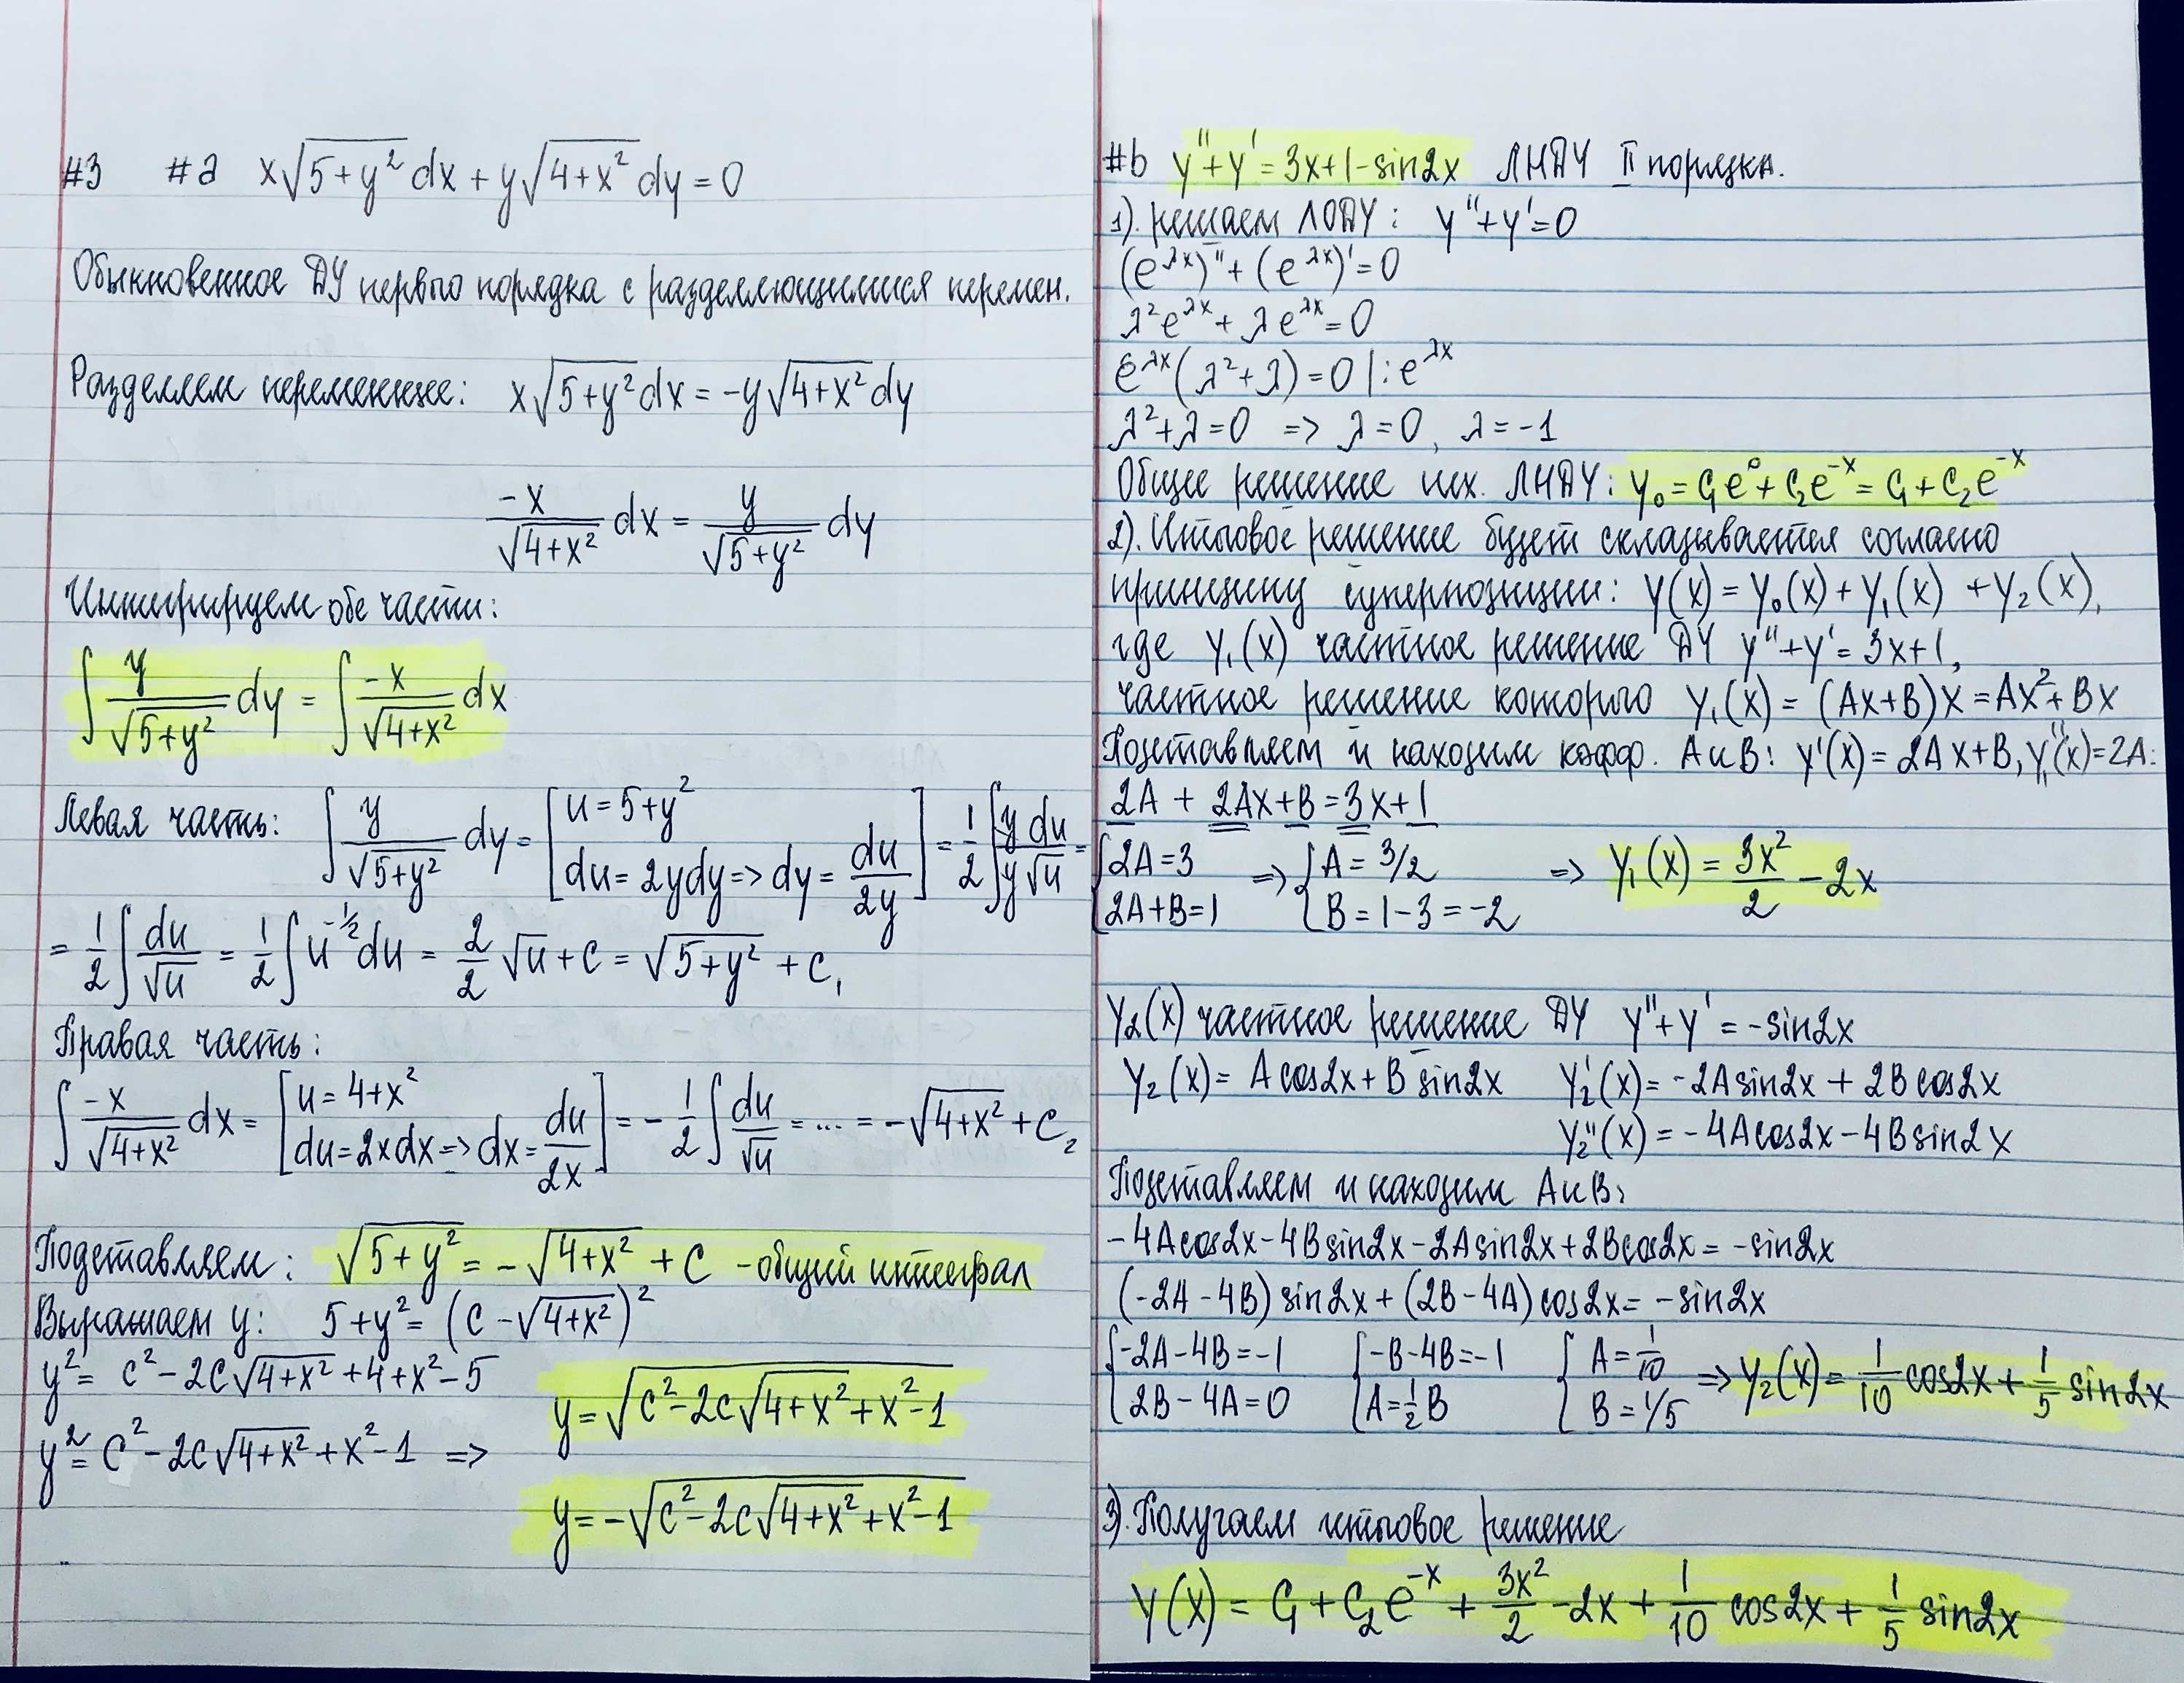 #3 #a x√(5+y²) dx + y√(4+x²) dy = 0
Обыкновенное ДУ первого порядка с разделяющимися перемен.
Разделяем переменные: x√(5+y²) dx = -y√(4+x²) dy
-x/√(4+x²) dx = y/√(5+y²) dy
Интегрируем обе части:
∫ y/√(5+y²) dy = ∫ -x/√(4+x²) dx
Левая часть: ∫ y/√(5+y²) dy = [u = 5+y² du = 2ydy => dy = du/2y] = 1/2 ∫ y du/y√u =
= 1/2 ∫ du/√u = 1/2 ∫ u^(-1/2) du = 2/2 √u + C = √(5+y²) + C₁
Правая часть:
∫ -x/√(4+x²) dx = [u = 4+x² du = 2xdx => dx = du/2x] = -1/2 ∫ du/√u = ... = -√(4+x²) + C₂
Подставляем: √(5+y²) = -√(4+x²) + C - общий интеграл
Выражаем y: 5+y² = (C - √(4+x²))²
y² = C² - 2C√(4+x²) + 4 + x² - 5
y = √(C² - 2C√(4+x²) + x² - 1)
y² = C² - 2C√(4+x²) + x² - 1 =>
y = -√(C² - 2C√(4+x²) + x² - 1)
#b y'' + y' = 3x+1-sin2x ЛНДУ II порядка.
1). решаем ЛОДУ: y'' + y' = 0
(e^(λx))'' + (e^(λx))' = 0
λ²e^(λx) + λe^(λx) = 0
e^(λx)(λ²+λ) = 0 |: e^(λx)
λ²+λ=0 => λ=0, λ=-1
Общее решение исх. ЛНДУ: y₀ = C₁e⁰ + C₂e^(-x) = C₁ + C₂e^(-x)
2). Итоговое решение будет складывается согласно
принципу суперпозиции: y(x) = y₀(x) + y₁(x) + y₂(x),
где y₁(x) частное решение ДУ y'' + y' = 3x+1,
частное решение которого y₁(x) = (Ax+B)x = Ax²+Bx
Подставляем и находим коэфф. A и B: y'(x) = 2Ax+B, y₁''(x)=2A:
2A + 2Ax+B = 3x+1
{2A=3 2A+B=1 => {A = 3/2 B = 1-3 = -2 => y₁(x) = 3x²/2 - 2x
y₂(x) частное решение ДУ y'' + y' = -sin2x
y₂(x) = A cos2x + B sin2x y₂'(x) = -2A sin2x + 2B cos2x
y₂''(x) = -4A cos2x - 4B sin2x
Подставляем и находим A и B:
-4A cos2x - 4B sin2x - 2A sin2x + 2B cos2x = -sin2x
(-2A-4B) sin2x + (2B-4A) cos2x = -sin2x
{-2A-4B=-1 2B-4A=0 {-B-4B=-1 A=1/2 B {A=1/10 B=1/5 => y₂(x) = 1/10 cos2x + 1/5 sin2x
3). Получаем итоговое решение
y(x) = C₁ + C₂e^(-x) + 3x²/2 - 2x + 1/10 cos2x + 1/5 sin2x